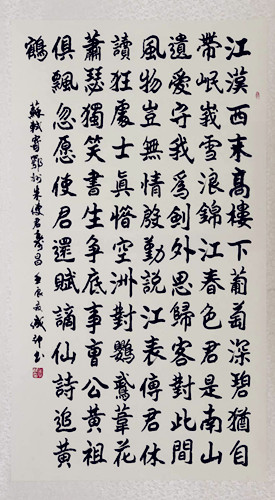 江漢西來高樓下葡萄深碧猶自
帶岷峩雪浪錦江春色君是南山
遺愛守我為劍外思歸客對此間
風物豈無情殷勤說江表傳君休
讀狂處士真惜空洲對鸚鵡葦花
蕭瑟獨笑書生爭底事曹公黃祖
俱飄忽愿使君還賦謫仙詩追黃
鶴
蘇軾寄鄂州朱使君壽昌 壬辰 誠鐘書